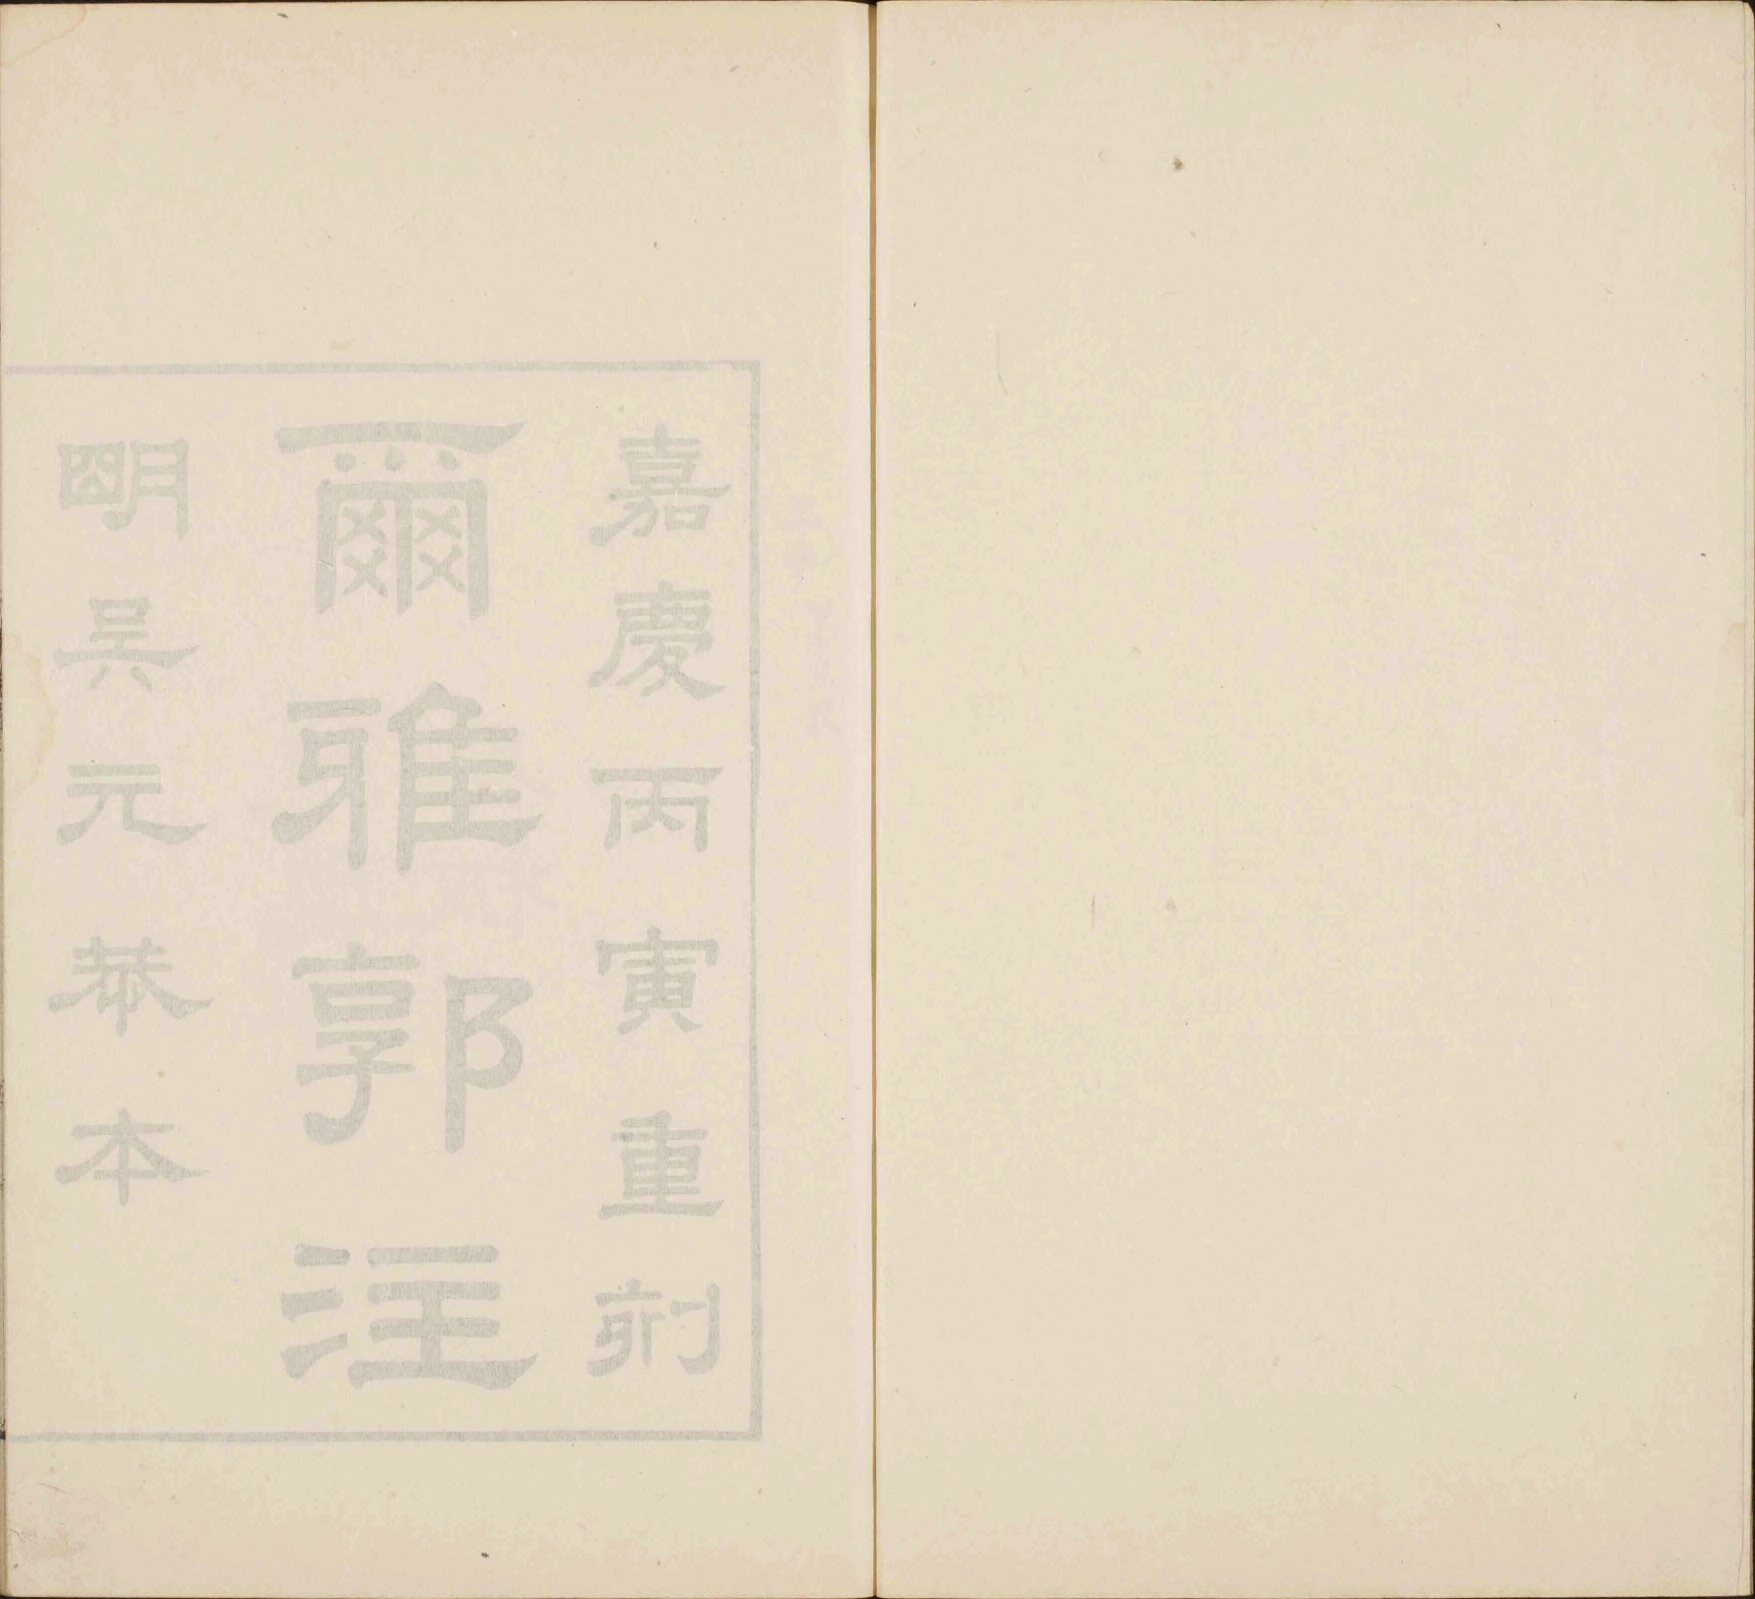 嘉慶丙寅重刊
爾雅郭注
明吳元恭本